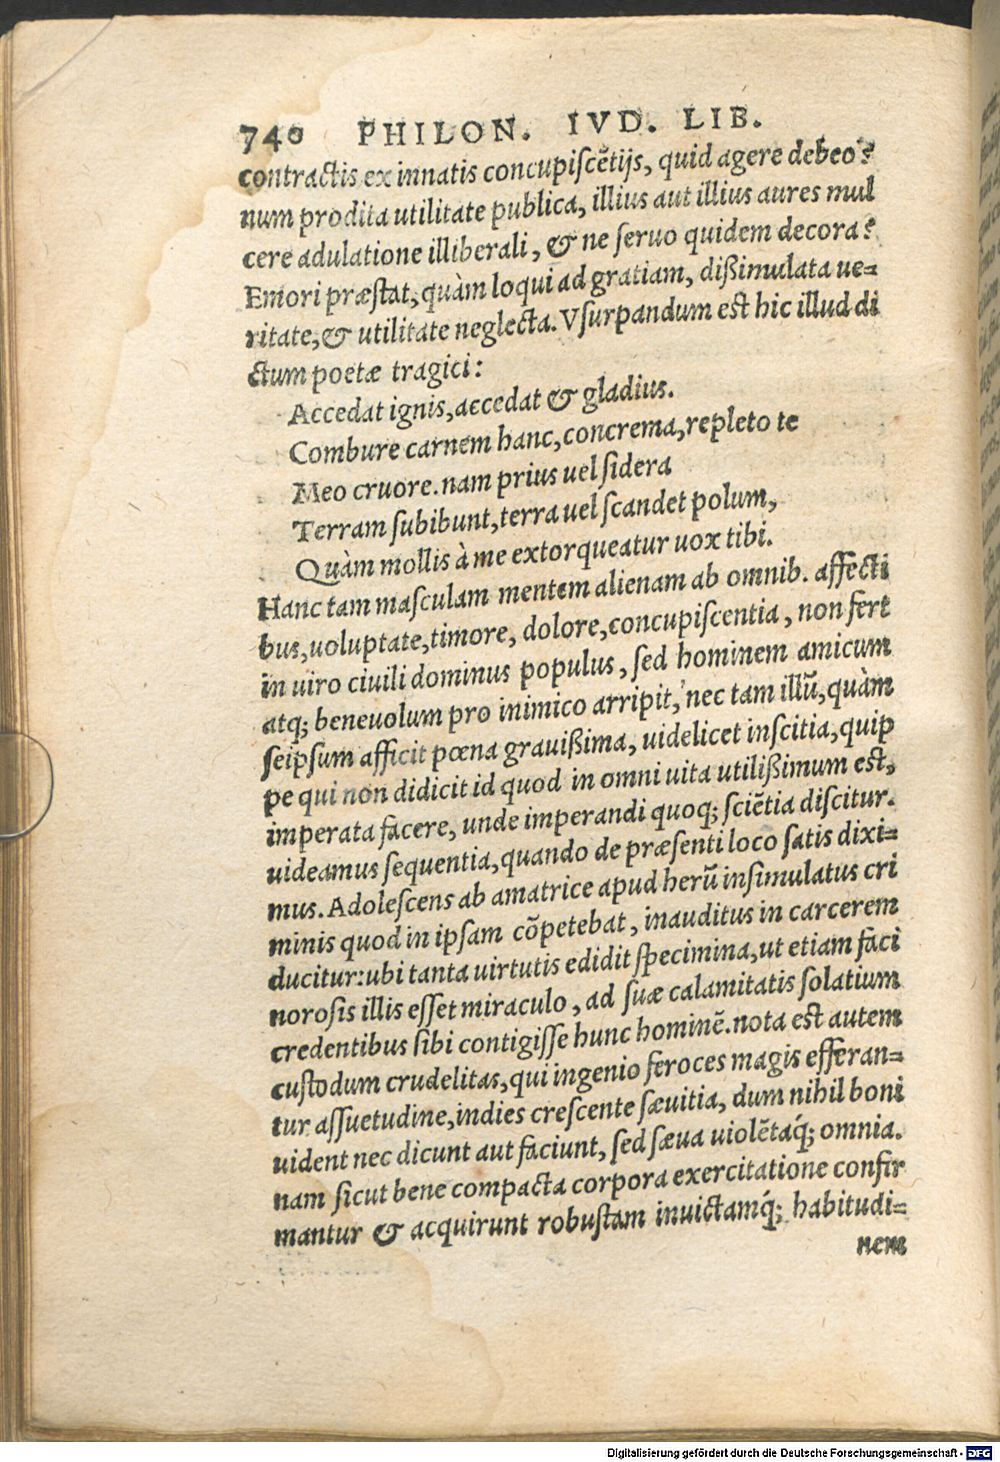 740 PHILON. IVD. LIB.
contractis ex innatis concupiſcẽtijs, quid agere debeo?
num prodita utilitate publica, illius aut illius aures mul
cere adulatione illiberali, & ne ſeruo quidem decora?
Emori præſtat, quàm loqui ad gratiam, dißimulata ue-
ritate, & utilitate neglecta. Vſurpandum eſt hic illud di
ctum poetæ tragici:
Accedat ignis, accedat & gladius.
Combure carnem hanc, concrema, repleto te
Meo cruore. nam prius uel ſidera
Terram ſubibunt, terra uel ſcandet polum,
Quàm mollis à me extorqueatur uox tibi.
Hanc tam maſculam mentem alienam ab omnib. affecti
bus, uoluptate, timore, dolore, concupiſcentia, non fert
in uiro ciuili dominus populus, ſed hominem amicum
atq; beneuolum pro inimico arripit, nec tam illũ, quàm
ſeipſum afficit pœna grauißima, uidelicet inſcitia, quip
pe qui non didicit id quod in omni uita utilißimum eſt,
imperata facere, unde imperandi quoq; ſciẽtia diſcitur.
uideamus ſequentia, quando de præſenti loco ſatis dixi-
mus. Adoleſcens ab amatrice apud herũ inſimulatus cri
minis quod in ipſam cõpetebat, inauditus in carcerem
ducitur: ubi tanta uirtutis edidit ſpecimina, ut etiam faci
noroſis illis eſſet miraculo, ad ſuæ calamitatis ſolatium
credentibus ſibi contigiſſe hunc hominẽ. nota eſt autem
cuſtodum crudelitas, qui ingenio feroces magis efferan-
tur aſſuetudine, indies creſcente ſæuitia, dum nihil boni
uident nec dicunt aut faciunt, ſed ſæua uiolẽtaq́; omnia.
nam ſicut bene compacta corpora exercitatione confir
mantur & acquirunt robuſtam inuictamq́; habitudi-
nem
Digitalisierung gefördert durch die Deutsche Forschungsgemeinschaft - DFG